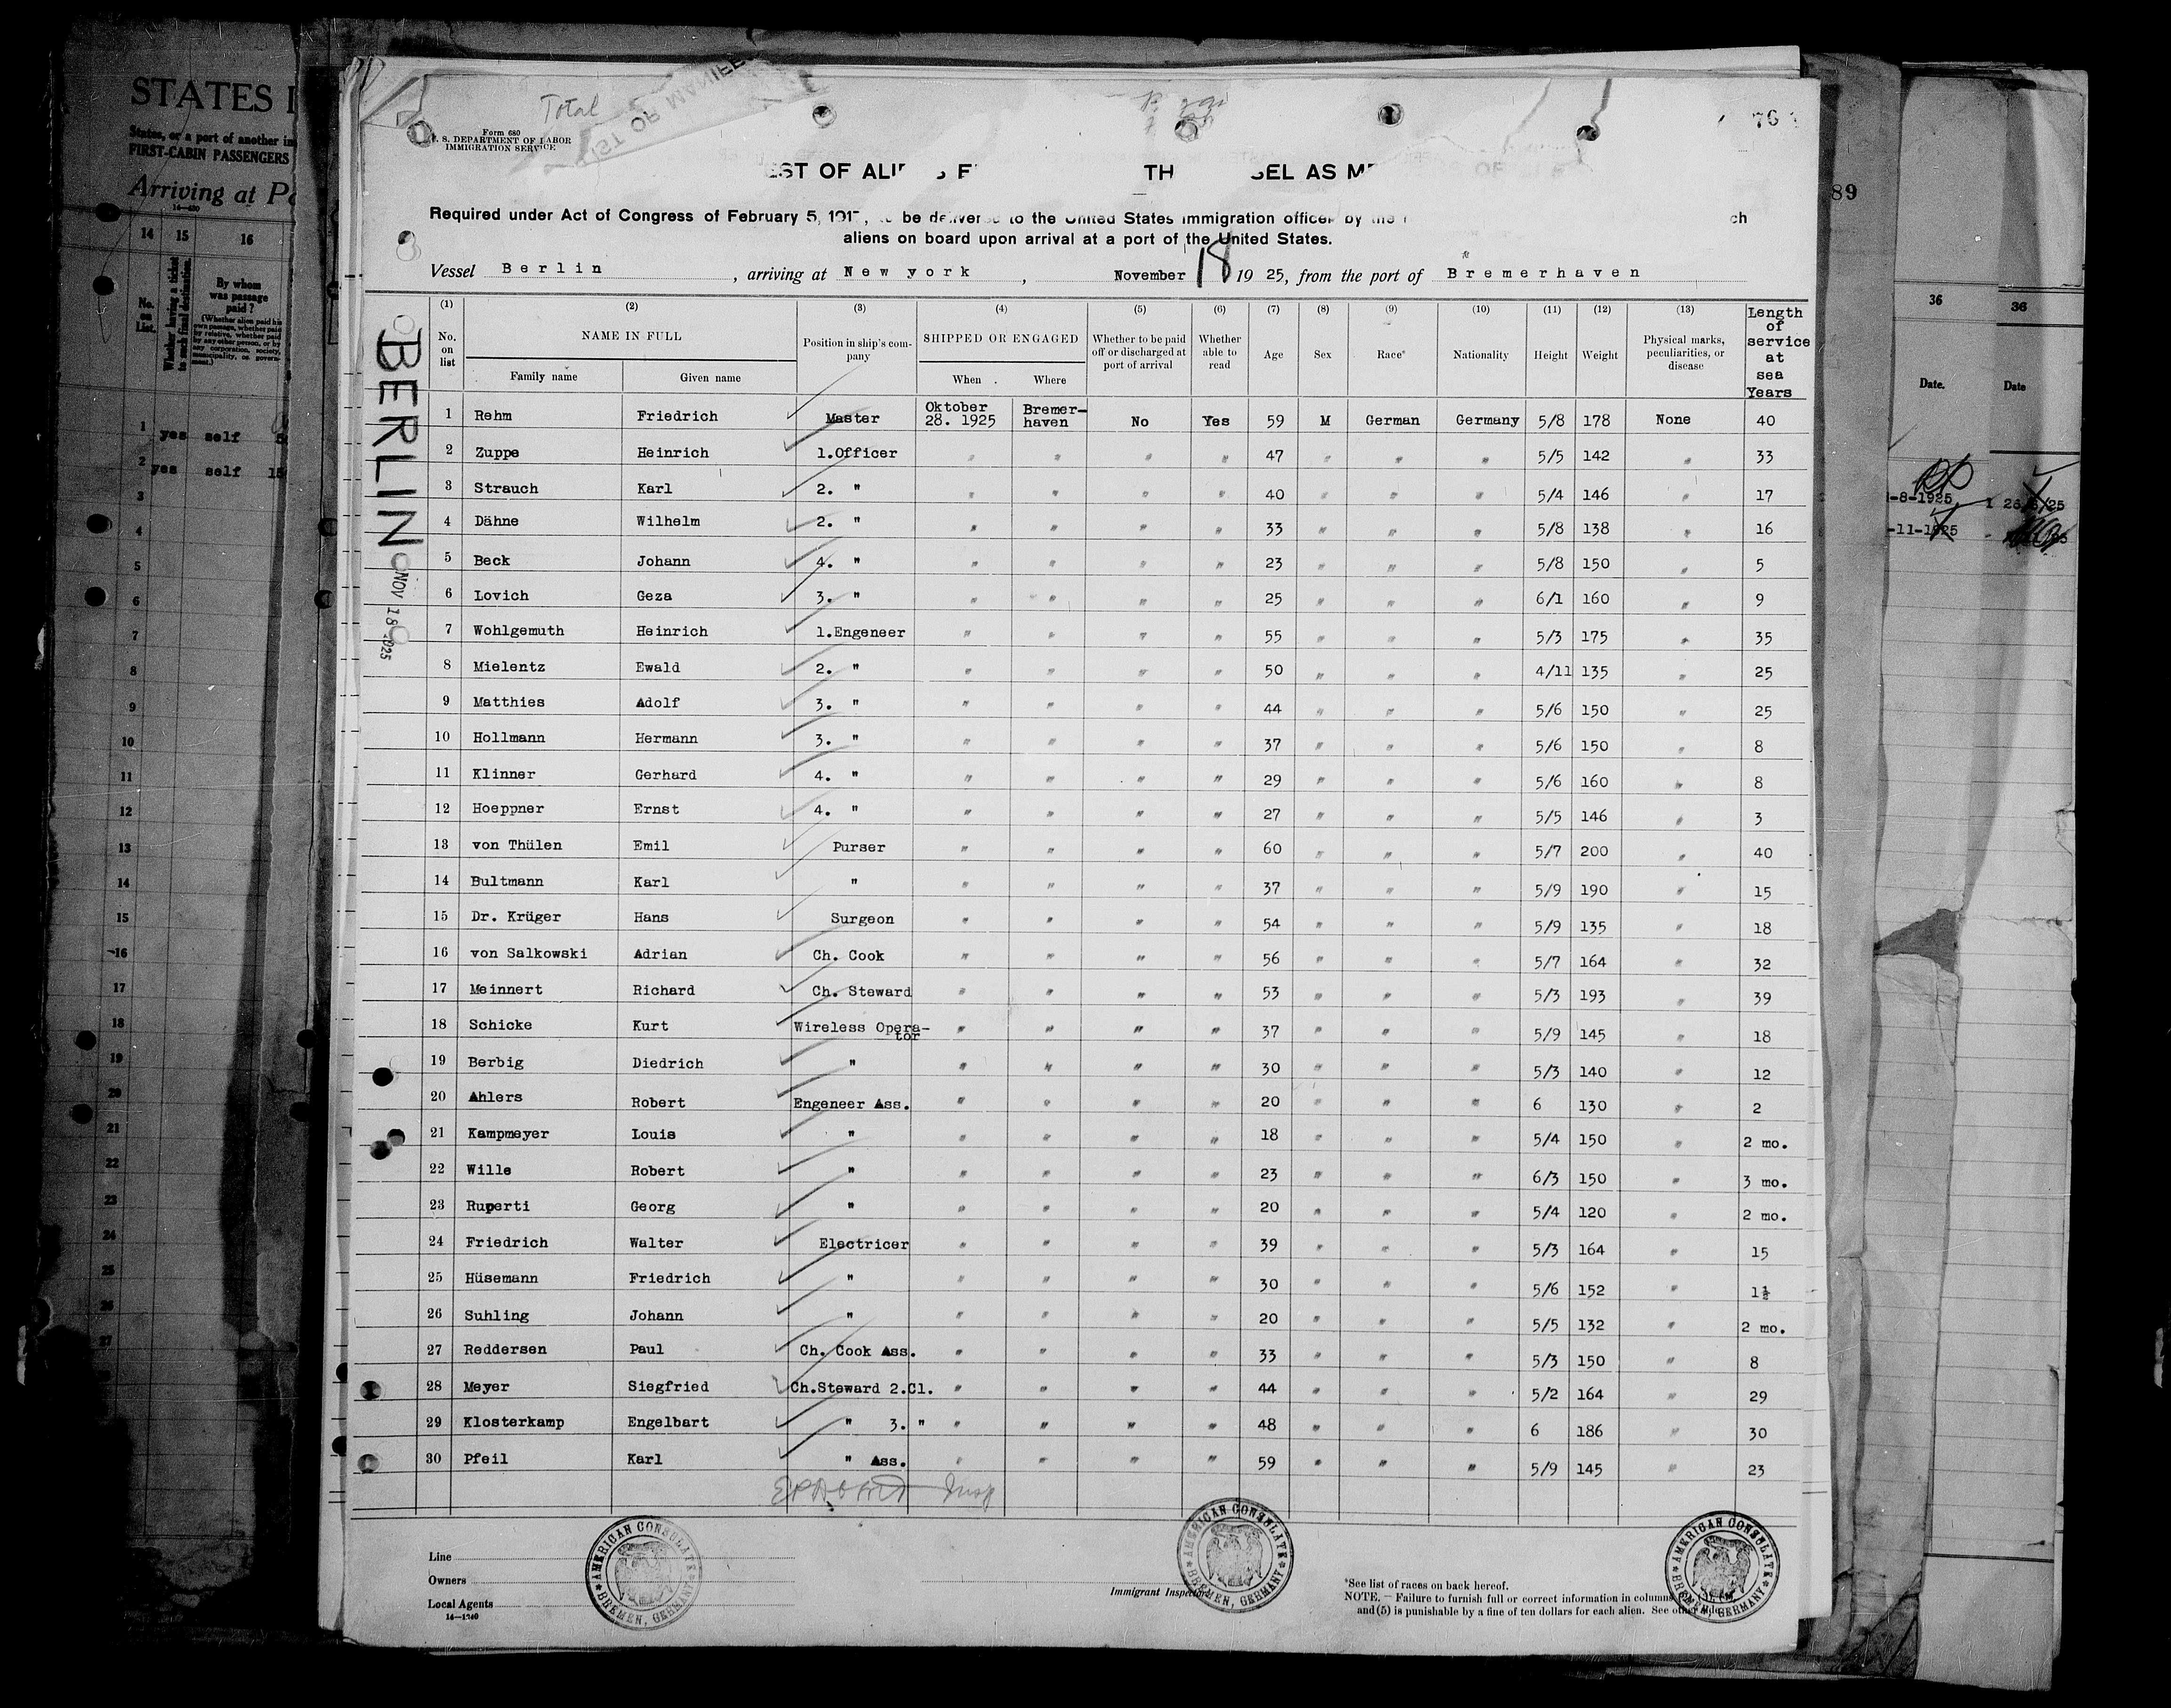 STATES I
States, or a port of another in
FIRST-CABIN PASSENGERS
Arriving at Po
14 15 16
No. on List.
Whether having a ticket to such final destination.
By whom was passage paid?
1 yes self
2 yes self 15
3
4
5
6
7
8
9
10
11
12
13
14
15
16
17
18
19
20
21
22
23
24
25
26
27
Total
Form 680
U. S. DEPARTMENT OF LABOR
IMMIGRATION SERVICE
76
89
TH SEL AS
Required under Act of Congress of February 5, 1917, to be delivered to the United States immigration officer by the ch
aliens on board upon arrival at a port of the United States.
Vessel Berlin, arriving at New york, November 18 1925, from the port of Bremerhaven
BERLIN
NOV 18 1925
(1) (2) (3) (4) (5) (6) (7) (8) (9) (10) (11) (12) (13)
No. on list
NAME IN FULL
Family name Given name
Position in ship's company
SHIPPED OR ENGAGED
When Where
Whether to be paid off or discharged at port of arrival
Whether able to read
Age Sex Race* Nationality Height Weight
Physical marks, peculiarities, or disease
Length of service at sea Years
1 Rehm Friedrich Master Oktober 28. 1925 Bremer-haven No Yes 59 M German Germany 5/8 178 None 40
2 Zuppe Heinrich 1.Officer " " " " 47 " " " 5/5 142 " 33
3 Strauch Karl 2. " " " " " 40 " " " 5/4 146 " 17
4 Dähne Wilhelm 2. " " " " " 33 " " " 5/8 138 " 16
5 Beck Johann 4. " " " " " 23 " " " 5/8 150 " 5
6 Lovich Geza 3. " " " " " 25 " " " 6/1 160 " 9
7 Wohlgemuth Heinrich 1.Engeneer " " " " 55 " " " 5/3 175 " 35
8 Mielentz Ewald 2. " " " " " 50 " " " 4/11 135 " 25
9 Matthies Adolf 3. " " " " " 44 " " " 5/6 150 " 25
10 Hollmann Hermann 3. " " " " " 37 " " " 5/6 150 " 8
11 Klinner Gerhard 4. " " " " " 29 " " " 5/6 160 " 8
12 Hoeppner Ernst 4. " " " " " 27 " " " 5/5 146 " 3
13 von Thülen Emil Purser " " " " 60 " " " 5/7 200 " 40
14 Bultmann Karl " " " " " 37 " " " 5/9 190 " 15
15 Dr. Krüger Hans Surgeon " " " " 54 " " " 5/9 135 " 18
16 von Salkowski Adrian Ch. Cook " " " " 56 " " " 5/7 164 " 32
17 Meinnert Richard Ch. Steward " " " " 53 " " " 5/3 193 " 39
18 Schicke Kurt Wireless Opera-tor " " " " 37 " " " 5/9 145 " 18
19 Berbig Diedrich " " " " " 30 " " " 5/3 140 " 12
20 Ahlers Robert Engeneer Ass. " " " " 20 " " " 6 130 " 2
21 Kampmeyer Louis " " " " " 18 " " " 5/4 150 " 2 mo.
22 Wille Robert " " " " " 23 " " " 6/3 150 " 3 mo.
23 Ruperti Georg " " " " " 20 " " " 5/4 120 " 2 mo.
24 Friedrich Walter Electricer " " " " 39 " " " 5/3 164 " 15
25 Hüsemann Friedrich " " " " " 30 " " " 5/6 152 " 1½
26 Suhling Johann " " " " " 20 " " " 5/5 132 " 2 mo.
27 Reddersen Paul Ch. Cook Ass. " " " " 33 " " " 5/3 150 " 8
28 Meyer Siegfried Ch.Steward 2.Cl. " " " " 44 " " " 5/2 164 " 29
29 Klosterkamp Engelbart " 3. " " " " " 48 " " " 6 186 " 30
30 Pfeil Karl " Ass. " " " " 59 " " " 5/9 145 " 23
Insp
Line
Owners
Local Agents
14—1240
AMERICAN CONSULATE BREMEN, GERMANY
AMERICAN CONSULATE BREMEN, GERMANY
AMERICAN CONSULATE BREMEN, GERMANY
Immigrant Inspector
*See list of races on back hereof.
NOTE.—Failure to furnish full or correct information in columns
and (5) is punishable by a fine of ten dollars for each alien. See other side.
36 36
Date. Date
-8-1925
-11-1925